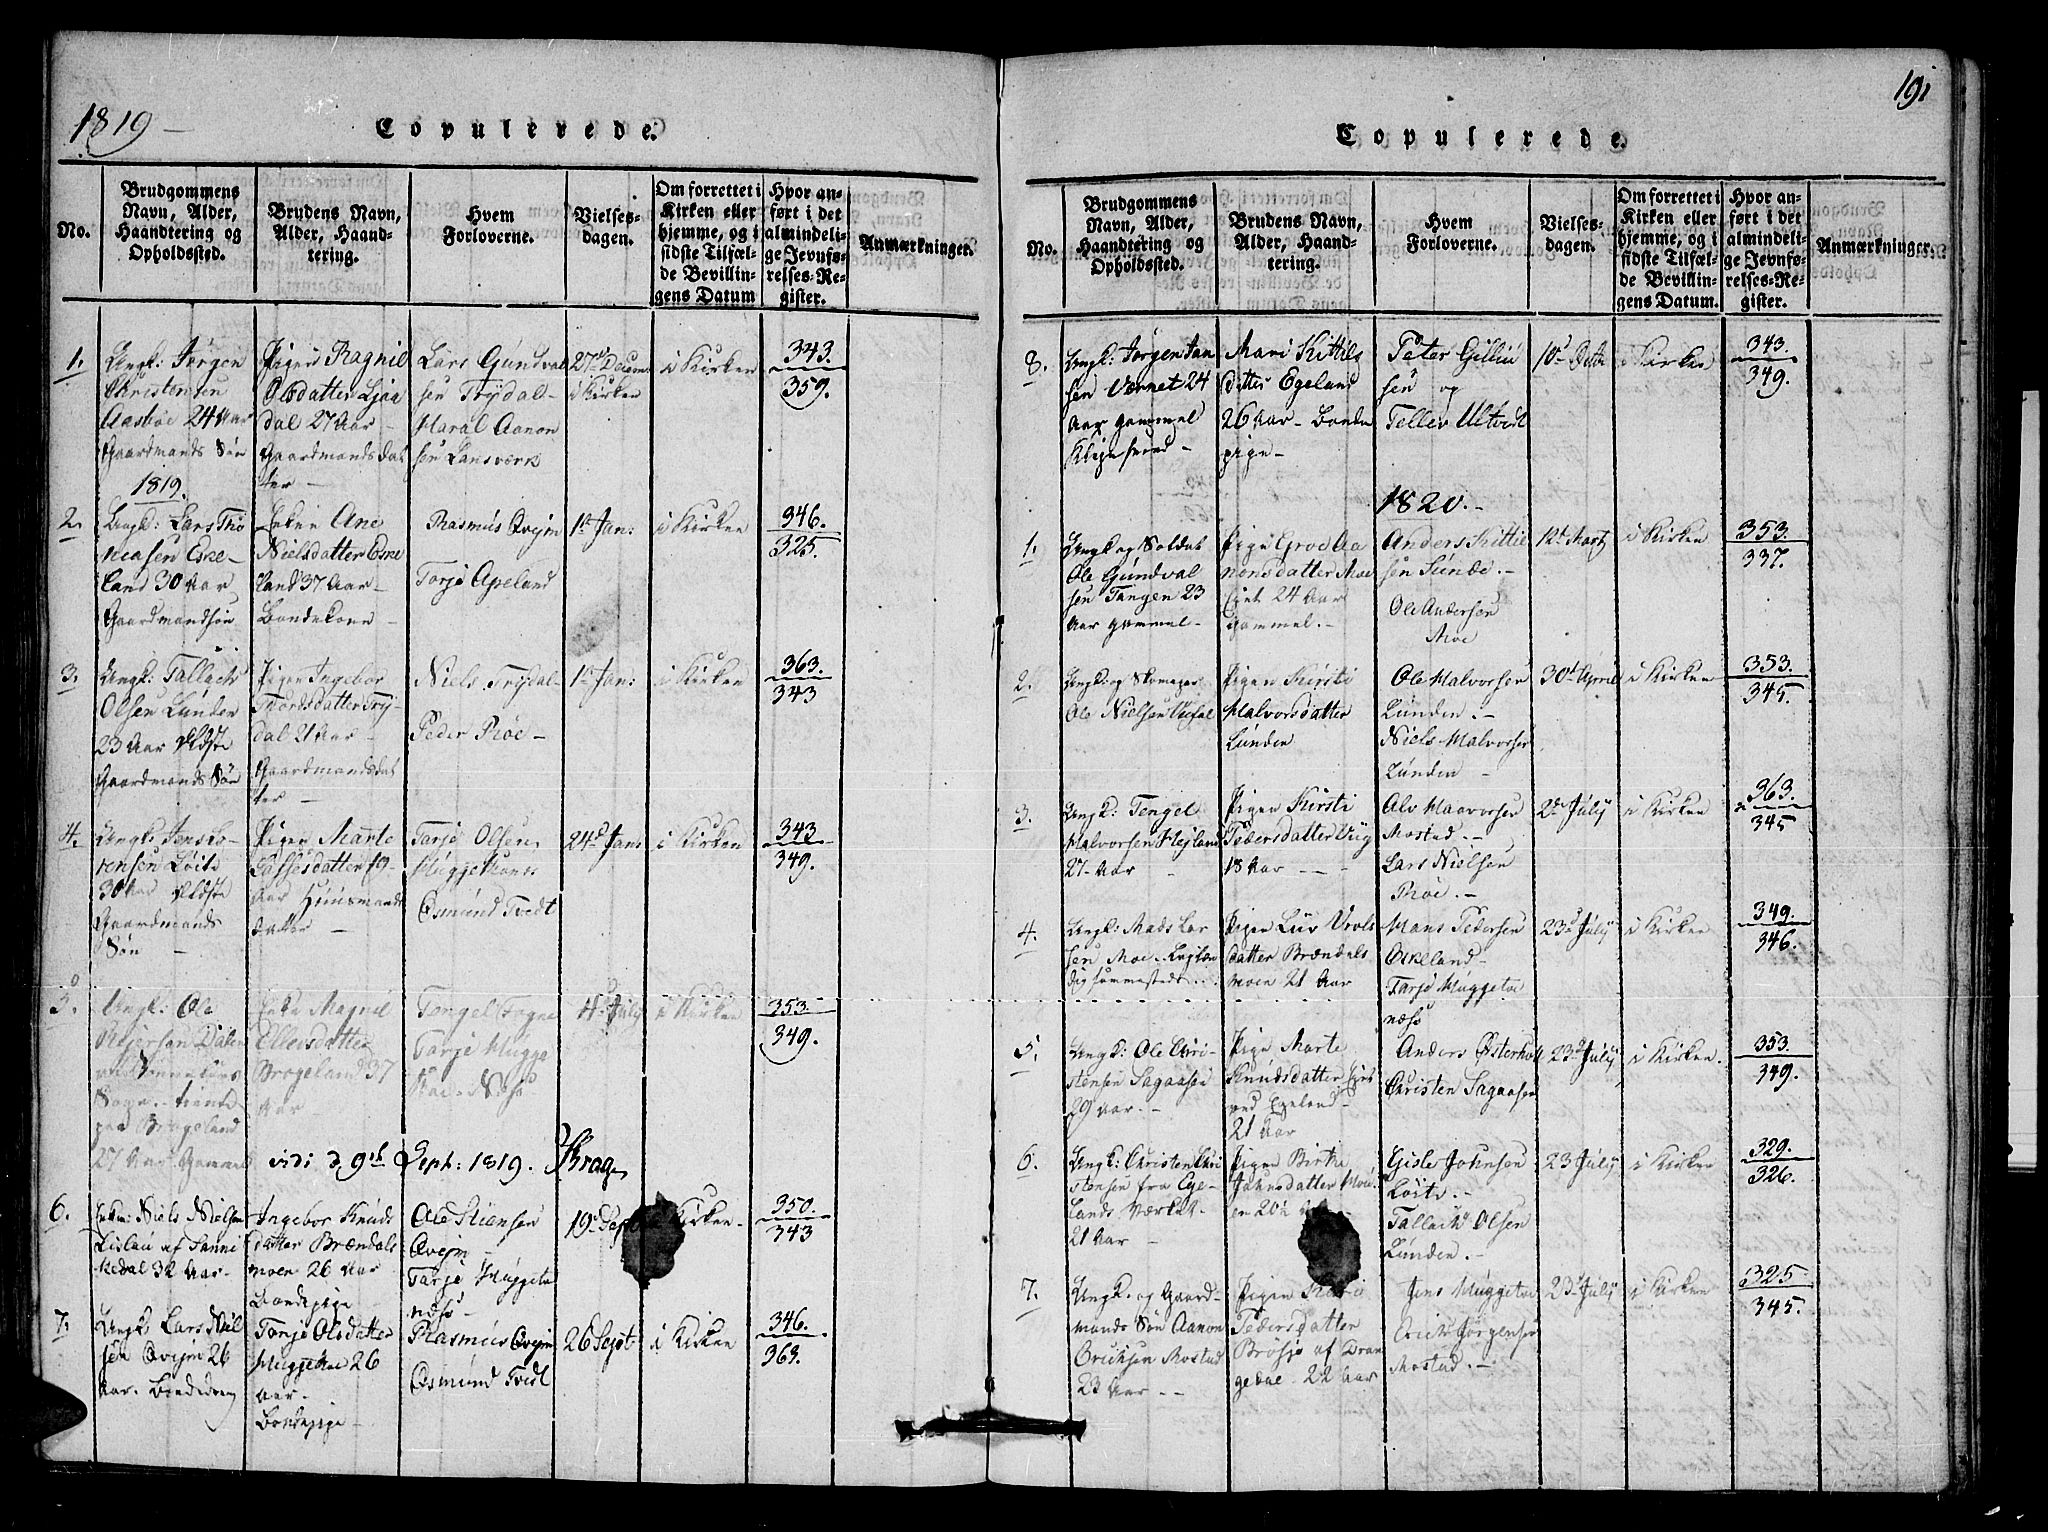 1819 –
Copulerede.
No.
Brudgommens
Navn, Alder,
Haandtering og
Opholdssted.
Brudens Navn,
Alder, Haand-
tering.
Hvem
Forloverne.
Vielses-
dagen.
Om forrettet i
Kirken eller
hjemme, og i
sidste Tilfæl-
de Bevillin-
gens Datum
Hvor an-
ført i det
almindeli-
ge Jevnfø-
relses-Re-
gister.
Anmærkninger.
1.
Ungk: Jørgen
Christensen
Aasbøe 24 Aar
Gaardmands Søn
Pigen Ragnil
Olsdatter Ljaa
dal 27 Aar –
Gaardmands dat
ter –
Lars Gundval
sen Trydal –
Haral Aanon
sen Lansværk
27de Decem
i Kirken
i Kirken
343
359.
1819.
2.
Ungk: Lars Tho
measen Eske-
land 30 Aar
Gaardmandsøn
Enken Ane
Nielsdatter Eske
land 37 Aar –
Bondekone –
Rasmus Qvejm
Tarje Apeland
1st Jan:
i Kirken
346.
325.
3.
Ungk: Tallach
Olsen Lunden
23 Aar Eldste
Gaardmands Søn
Pigen Ingebor
Tordsdatter Try-
dal 21 Aar –
Gaardmandsdat
ter –
Niels Trydal –
Peder Røe –
1st Jan:
i Kirken
363.
343
4.
Ungk: Jens Lo-
rensen Løite
30 Aar Eldste
Gaardmands
Søn –
Pigen Marte
Lassesdatter 19
Aar Huusmands
datter –
Tarje Olsen
Muggetkaas
Osmund Tvedt
24d Jan:
i Kirken
343
349.
5.
Ungk: Ole
Sogn. – tiente
paa Brogeland
27 Aar Gammel
Enke Magnil
Ellefsdatter
Brogeland 37
Aar –
Tengel Fogne
Tarje Mugge
4de July
i Kirken
353.
349.
vidi d 9th Sept: 1819. Krag
6.
Enkm: Niels Nielsen
Lislau af Sanni
kedal 32 Aar –
Ingebor Knuds
datter Brændals
moen 26 Aar
Bondepige –
Ole Stiansen
Qvejm –
Tarje Muggetv
næsø
19d Sept
i Kirken –
350.
343
7.
Ungk Lars Niel
sen Qvejm 26
Aar. Bondedreng
Tarje Olsdatter
Muggetvæ 26
aar –
Bondepige –
Rasmus Qvejm
Osmund Tvedt
26 Sept
i Kirken
346.
363.
191
Copulerede.
No.
Brudgommens
Navn, Alder,
Haandtering og
Opholdssted.
Brudens Navn,
Alder, Haand-
tering.
Hvem
Forloverne.
Vielses-
dagen.
Om forrettet i
Kirken eller
hjemme, og i
sidste Tilfæl-
de Bevillin-
gens Datum.
Hvor an-
ført i det
almindeli-
ge Jevnfø-
relses-Re-
gister.
Anmærkninger.
8.
Ungk: Jørgen Jan
sen Vernet 24
Aar gammel
Mari Kittils
datter Egeland
26 Aar – Bonde
pige –
Peter Gillius
sen og
Tellev Ultvedt
10d Octbr
i Kirken
343.
349.
1820. –
1.
Ungk og Soldat
Ole Gundval
sen Tangen 23
Aar gammel –
Pigen Groe Aa
nonsdatter Moe
Ejet 24 Aar
Gammel. –
Anders Kittil
sen Sunde. –
Ole Andersen
Moe
12d Marty
i Kirken
353.
337.
2.
Ungk: og Skomager
Ole Nielsen
Pigen Kirsti
Halvorsdatter
Lunden
Ole Halvorsen
Lunden. –
Niels Halvorsen
Lunden –
30d April
i Kirken
353.
345.
3.
Ungk: Tengel
Halvorsen Hejland
27 Aar –
Pigen Kirsti
Pedersdatter Vüg
18 Aar – –
Alv Haavorsen
Mostad. –
Lars Nielsen
Røe. –
2de July
i Kirken
363.
345
4.
Ungk: Mads Lar
sen Moe –
Pigen Liv Vrols
datter Brændals
moen 21 Aar
Hans Pedersen
Eskeland –
Tarje Muggetv
næsø
23d July
i Kirken
349.
346.
5.
Ungk: Ole Chri-
stensen Sagaasen
29 Aar. –
Pige Marte
Knudsdatter Ejes
ved Egeland –
21 Aar
Anders Østerholt
Christen Sagaasen
23d July
i Kirken.
353.
349.
6.
Ungk: Christen Chri
stensen fra Ege-
lands Værket –
21 Aar –
Pigen Birthe
Johnsdatter Moe
en 20½
Gisle Johnsen
Løite. –
Tallach Olsen
Lunden. –
23 July
i Kirken
329.
326.
7.
Ungk. og Gaard-
mands Søn Aanon
Erichsen Mostad
23 Aar – –
Pigen Kari
Pedersdatter
Brøsjø af Dran
gedal – 22 Aar
Jens Muggetv
Erich Jørgensen
Mostad. –
23d July
i Kirken
325
345.